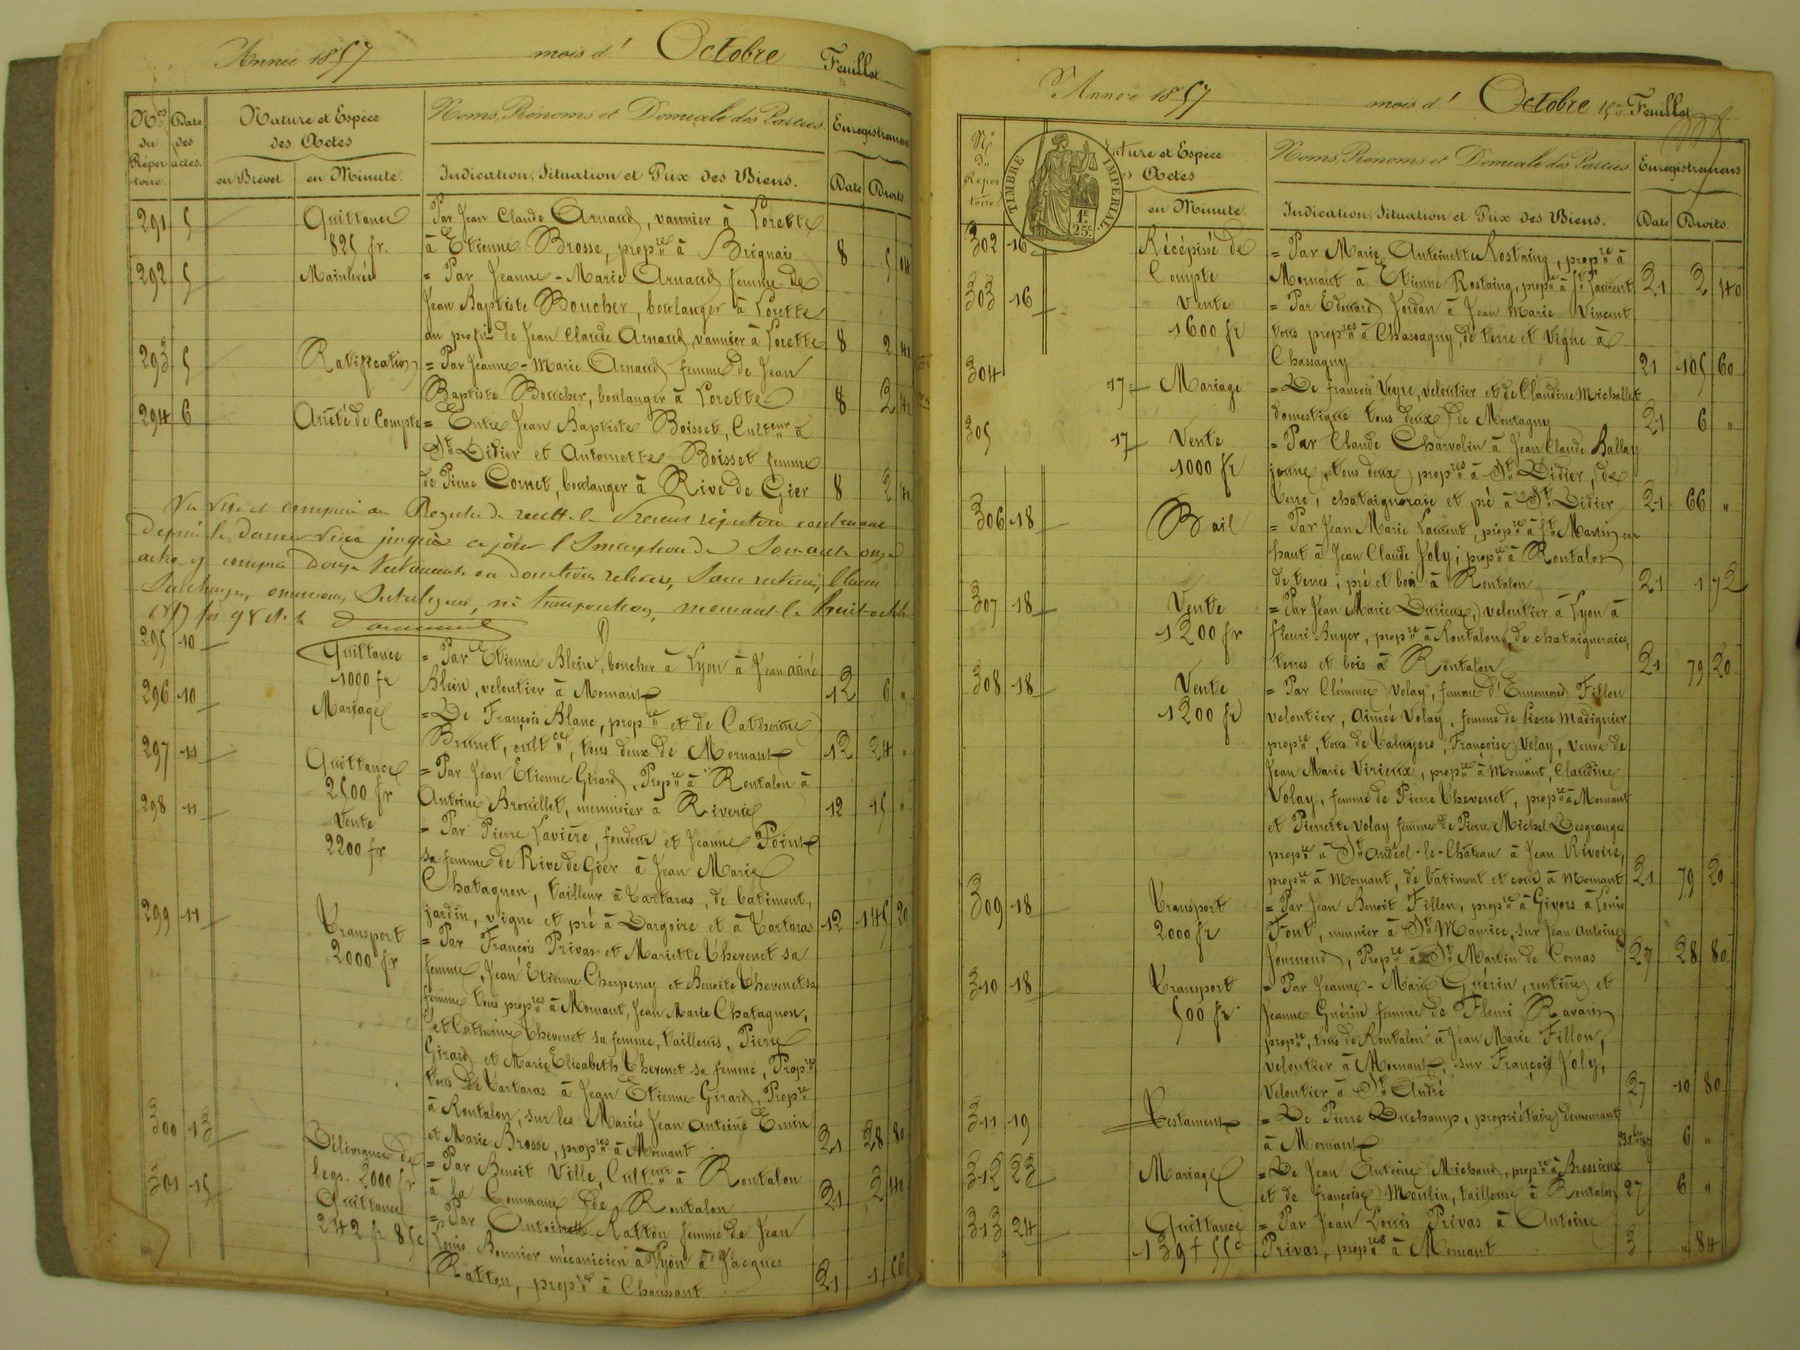 Année 1857 mois d' Octobre Feuillet
Nos du Répertoire
Date des actes.
Nature et Espèce des Actes
en Brevet en Minute.
Noms, Prénoms et Domicile des Parties.
Indication, Situation et Prix des Biens.
Enregistrement
Date Droits
291 5 Quittance Par Jean Claude Arnaud, vannier à Lorette
825 fr. à Etienne Brosse, propre à Brignais 8 5 04
292 5 Mainlevée = Par Jeanne-Marie Arnaud femme de
Jean Baptiste Boucher, boulanger à Lorette
au profit de Jean Claude Arnaud, vannier à Lorette 8 2 40
293 5 Ratification = Par Jeanne-Marie Arnaud femme de Jean
Baptiste Boucher, boulanger à Lorette 8 2 40
294 6 Arrêté de Compte = Entre Jean Baptiste Boisset, Culteur à
St Didier et Antoinette Boisset femme
de Pierre Cornet, boulanger à Rive de Gier 8 2 40
depuis le dernier visa jusqu'à ce jour
295 10 Quittance = Par Etienne Blein, boucher à Lyon à Jean aîné
1000 fr Blein, veloutier à Mornant 12 6 "
296 10 Mariage = De François Blanc, propre et de Catherine
Brunet, cultce, tous deux de Mornant 12 24 "
297 11 Quittance = Par Jean Etienne Girard, Propre à Rontalon à
2500 fr Antoine Brouillet, menuisier à Riverie 12 15 "
298 11 Vente = Par Pierre Lavière, fondeur et Jeanne Point
2200 fr sa femme de Rive de Gier à Jean Marie
Chatagnon, tailleur à Tartaras, de bâtiment,
jardin, vigne et pré à Dargoire et à Tartaras 12 145 20
299 11 Transport = Par François Privas et Mariette Thevenet sa
2000 fr femme, Jean Etienne Charpenay et Benoite Thevenet sa
femme tous propres à Mornant, Jean Marie Chatagnon,
et Catherine Thevenet sa femme, tailleurs, Pierre
Girard et Marie Elisabeth Thevenet sa femme, Propres
tous de Tartaras à Jean Etienne Girard, Propre
à Rontalon, sur les Mariés Jean Antoine
et Marie Brosse, propres à Mornant 21 28 80
300 13 Délivrance de = Par Benoit Ville, Culteur à Rontalon
legs. 2000 fr à la Commune de Rontalon 21 2 40
301 15 Quittance = Par Antoinette Ratton femme de Jean
242 fr 85c Louis Bonnier mécanicien à Lyon à Jacques
Ratton, propre à Chaussant 21 1 56
Année 1857 mois d' Octobre Feuillet
No du Répertoire
TIMBRE IMPERIAL
1F. 25c.
ture et Espèce
s Actes
en Minute.
Noms, Prénoms et Domicile des Parties.
Indication, Situation et Prix des Biens.
Enregistremens
Date Droits.
302 16 Récépissé de = Par Marie Antoinette Rostaing, propre à
Compte Mornant à Etienne Rostaing, propre à St Laurent 21 2 40
303 16 Vente = Par Edouard Jordan à Jean Marie Vincent
1600 fr tous propres à Chassagny, de terre et vigne à
Chassagny 21 105 60
304 17 Mariage = De François Veyre, veloutier et de Claudine Michallet
domestique tous deux de Montagny 21 6 "
305 17 Vente = Par Claude Charvolin à Jean Claude Ballay
1000 fr jeune, tous deux propres à St Didier, de
terre, chataigneraie et pré à St Didier 21 66 "
306 18 Bail = Par Jean Marie Laurent, propre à St Martin en
haut à Jean Claude Joly, propre à Rontalon
de terres, pré et bois à Rontalon 21 1 72
307 18 Vente = Par Jean Marie Durieux, veloutier à Lyon à
1200 fr Fleuri Buyer, propre à Rontalon, de chataigneraies,
terres et bois à Rontalon 21 79 20
308 18 Vente = Par Clémence Volay, femme d'Ennemond Fillon
1200 fr veloutier, Aimée Volay, femme de Pierre Madignier
propre, tous de Taluyers, Françoise Volay, veuve de
Jean Marie Virieux, propre à Mornant, Claudine
Volay, femme de Pierre Thevenet, propre à Mornant
et Pierrette Volay femme de Pierre Michel Desgranges
propre à St Andéol-le-Château à Jean Rivoire,
propre à Mornant, de bâtiment et cour à Mornant 21 79 20
309 18 Transport = Par Jean Benoit Fillon, propre à Givors à Louis
2000 fr Font, meunier à St Maurice, sur Jean Antoine
Journoud, Propre à St Martin de Cornas 27 28 80
310 18 Transport = Par Jeanne-Marie Guérin, rentière et
500 fr Jeanne Guérin femme de Fleuri Ravarin
propre, tous de Rontalon à Jean Marie Fillon,
veloutier à Mornant, sur François Joly,
Veloutier à St André 27 10 80
311 19 Testament = De Pierre Duchamp, propriétaire demeurant
à Mornant 6 "
312 23 Mariage = De Jean Antoine Michaud, propre à Bressieux
et de Françoise Moulin, tailleuse à Rontalon 27 6 "
313 24 Quittance = Par Jean Louis Privas à Antoine
139 f 55c Privas, propres à Mornant 3 " 84